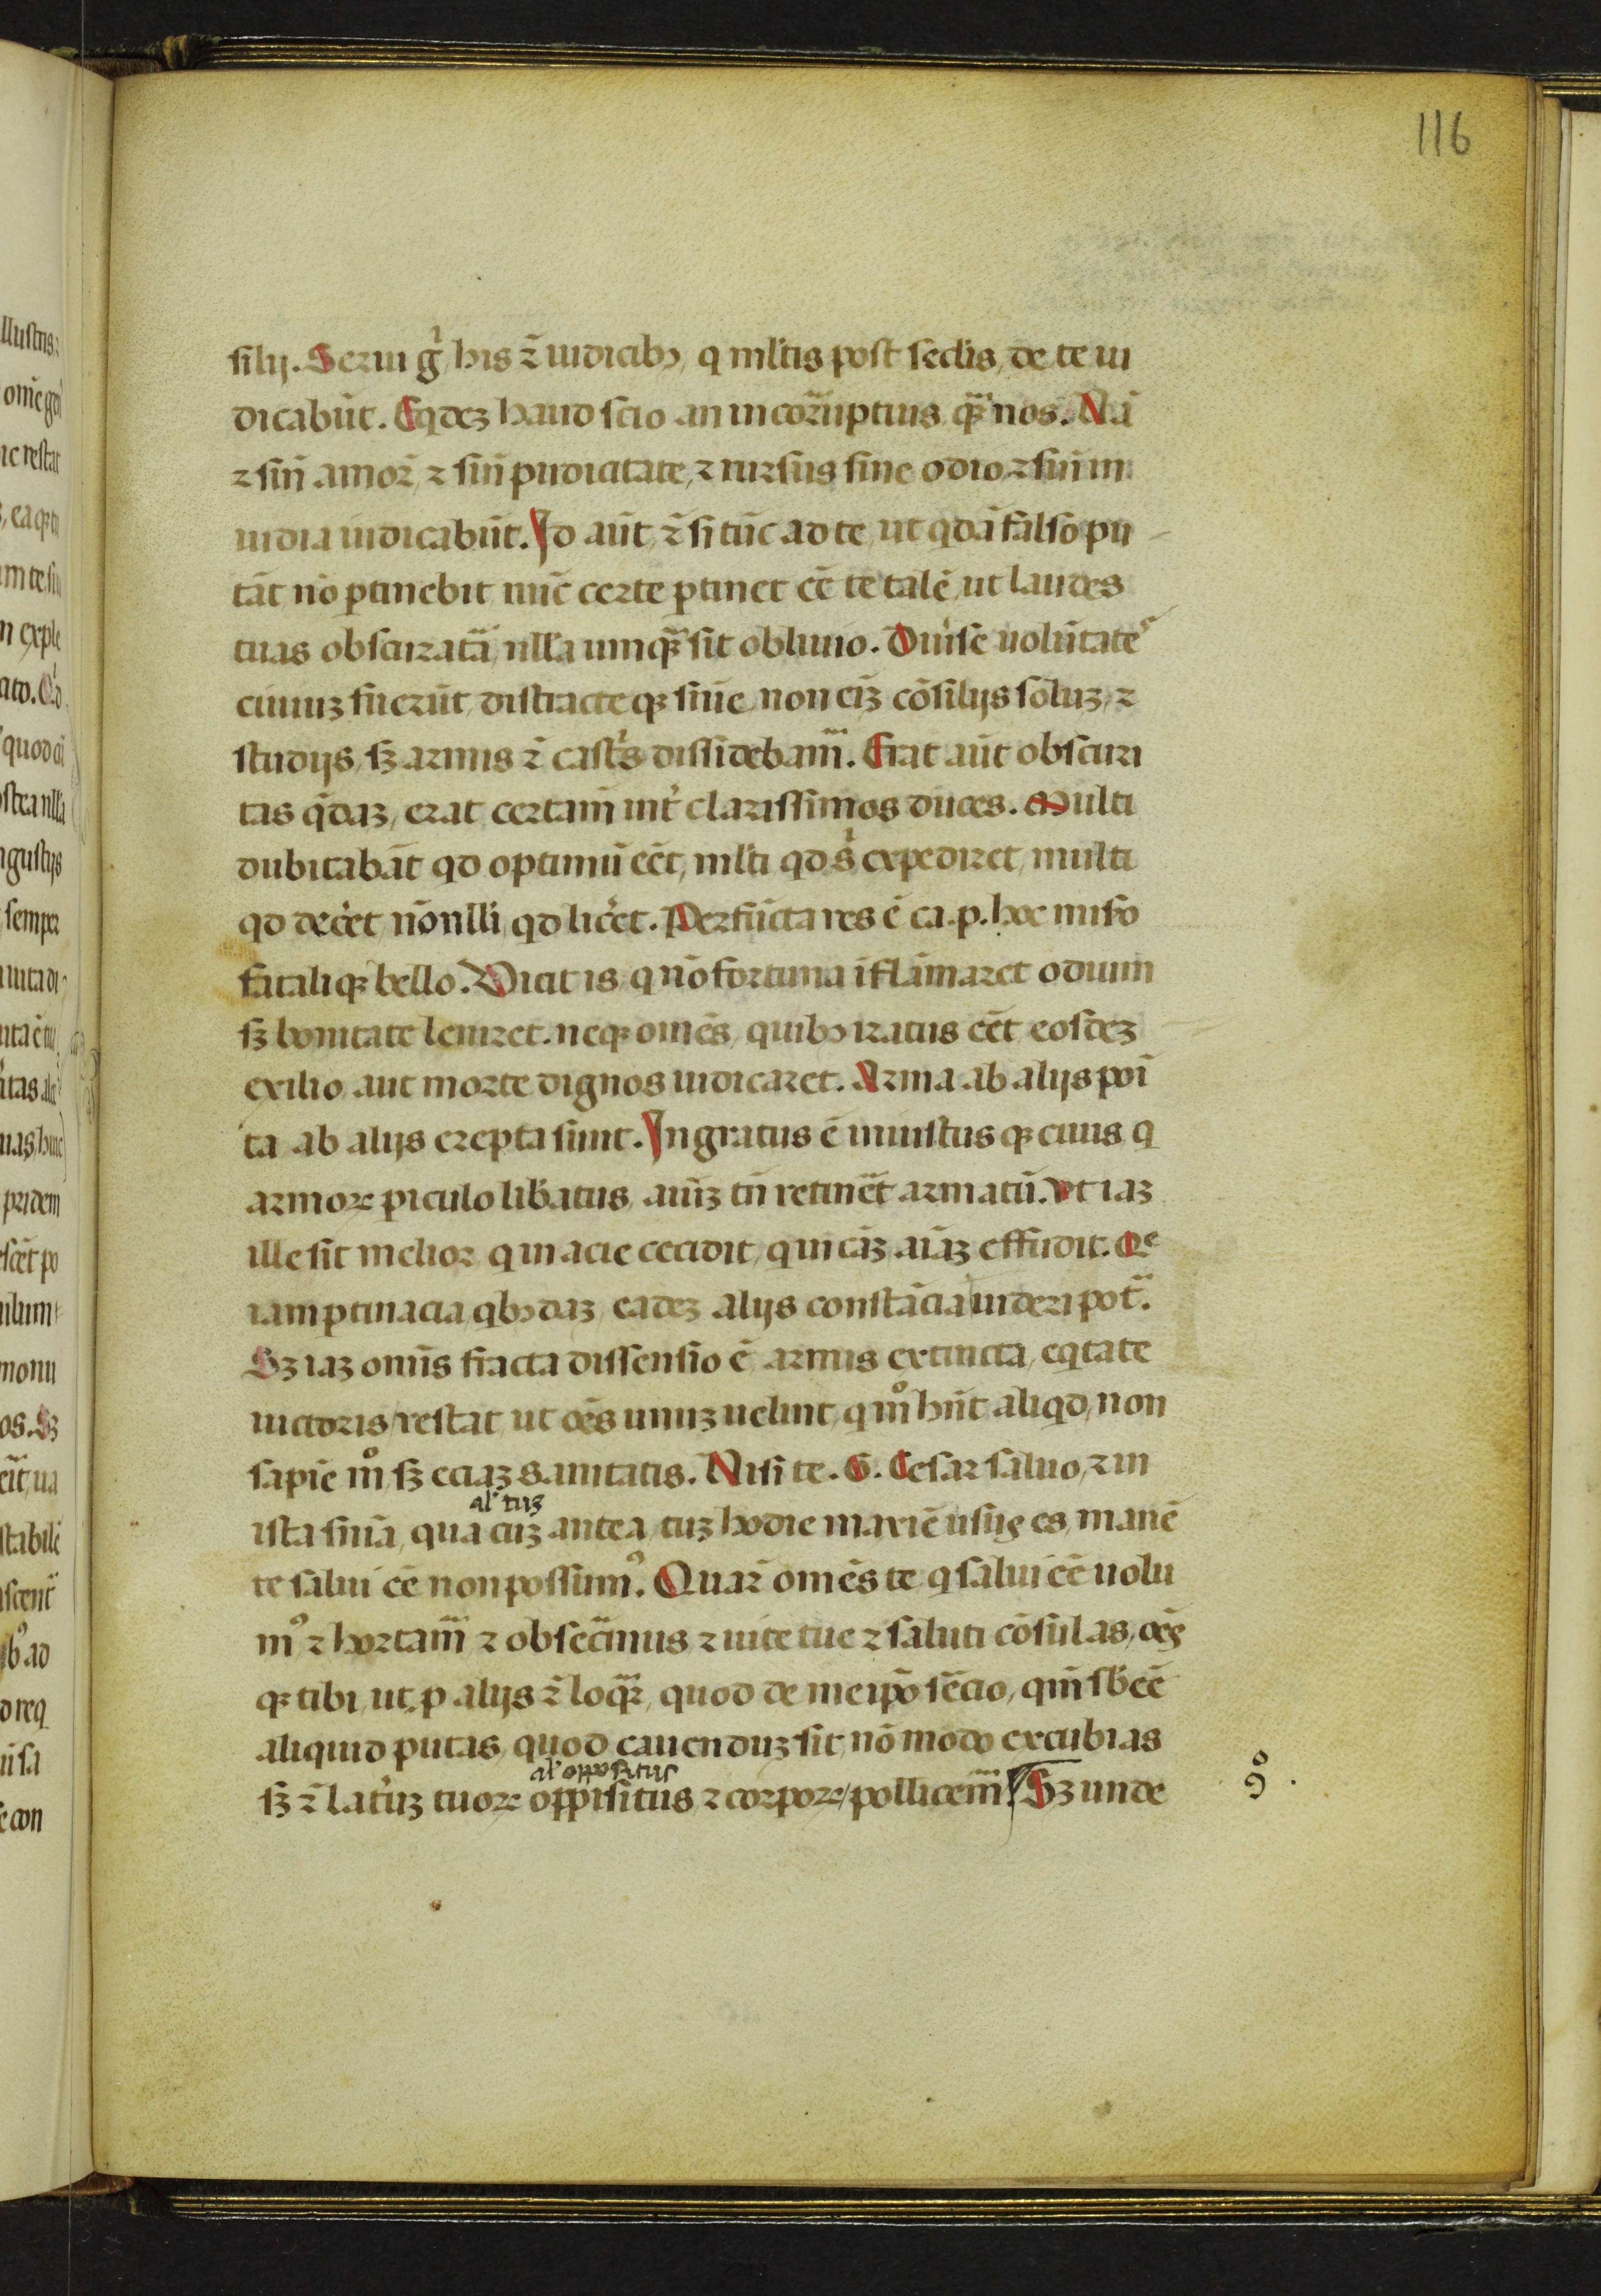 116
silij. Serui gͥ his ⁊̄ iudicibꝫ, q ml̃tis post seclis, de te iu
dicabūt. Eqdeꝫ haud scio an incorruptius q̃ꝫ nos. Nā
⁊ sīn amor̃, ⁊ sīn pudicitate, ⁊ rursus sine odio, ⁊ sīn in
uidia iudicabūt. Id aūt, ⁊̄ si tūc ad te, ut qdā falso pu
tāt nō ptinebit, nūc certe ptinet eē te talē, ut laudes
tuas obscuratā, nlla umq̃ꝫ sit obliuio. Diuīse uolūtates
ciuiuꝫ fuerūt, distracteqꝫ sīne, non eīꝫ cōsilijs soluꝫ, ⁊
studijs, sꝫ armis ⁊̄ castͥs dissidebam̃. Erat aūt obscuri
tas q̄daꝫ, erat certam̄ int̉ clarissimos duces. Multi
dubitabāt qd optimū eēt, ml̃ti qd sͥ expediret, multi
qd dec̉et, nōnlli, qd lic̉et. Perfūcta res ē ca. p. hoc miso
fatali qꝫ bello. Vicit is, q nō fortuna īflāmaret odium
sꝫ bonitate leniret. neqꝫ omēs, quibꝫ iratus eēt, eosdeꝫ
exilio, aut morte dignos iudicaret. Arma ab alijs poī
ta ab alijs erepta sunt. Ingratus ē iniustus qꝫ ciuis, q
armoꝝ piculo libatus, aīuꝫ tn̄ retinēt armatū. Vt iaꝫ
ille sit melior, q in acie cecidit, q in cāꝫ aīaꝫ effudit. Qe
iam ptinacia, qbꝫdaꝫ, eadeꝫ alijs constācia uideri pot̃.
Sꝫ iaꝫ omīs fracta dissensio ē armis extincta, eqtate
uictoris, restat, ut oēs unuꝫ uelint, q mº hn̄t aliqd, non
sapiē mº, sꝫ eciaꝫ sanitatis. Nisi te. G. Cesar saluo, ⁊ in
al' tuꝫ
ista snīa, qua cuꝫ antea, tuꝫ hodie maxīe usus es, manē
te salui eē non possum⁹. Quar̃ omēs te, q salui eē uolu
m⁹ ⁊ hortam̃ ⁊ obsec̃mus, ⁊ uite tue, ⁊ saluti cōsulas, oēs
qꝫ tibi, ut p alijs ⁊̄ loq̃ꝫ, quod de meipō sēcio, qm̄ sb'eē
aliquid putas, quod cauenduꝫ sit, nō modo excubias
al' oppositus
sꝫ ⁊̄ lat̉uꝫ tuoꝝ oppisitus, ⁊ corpoꝝ, pollicem̃. Sꝫ unde